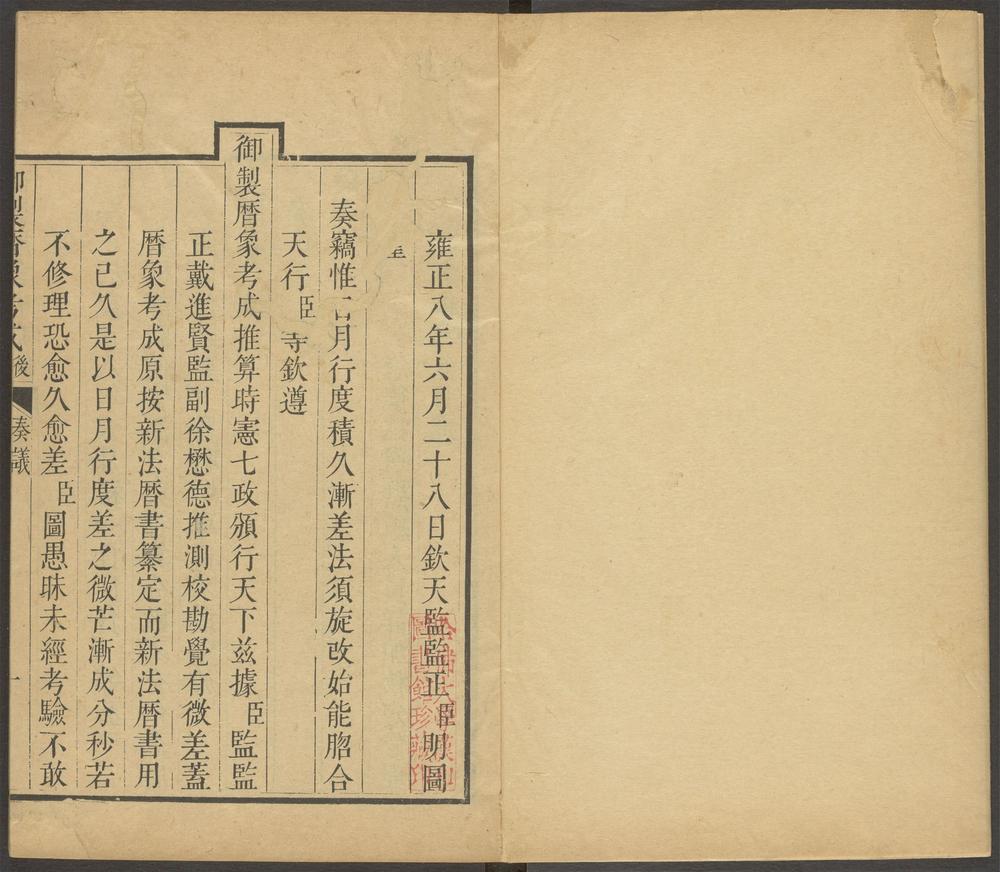 雍正八年六月二十八日欽天監監正臣明圖
奏竊惟日月行度積久漸差法須旋改始能脗合
天行臣等欽遵
御製曆象考成推算時憲七政頒行天下兹據臣監監
正戴進賢監副徐懋德推測校勘覺有微差蓋
曆象考成原按新法曆書纂定而新法曆書用
之已久是以日月行度差之微芒漸成分秒若
不修理恐愈久愈差臣圖愚昧未經考驗不敢
御製曆象考成後 奏議 一